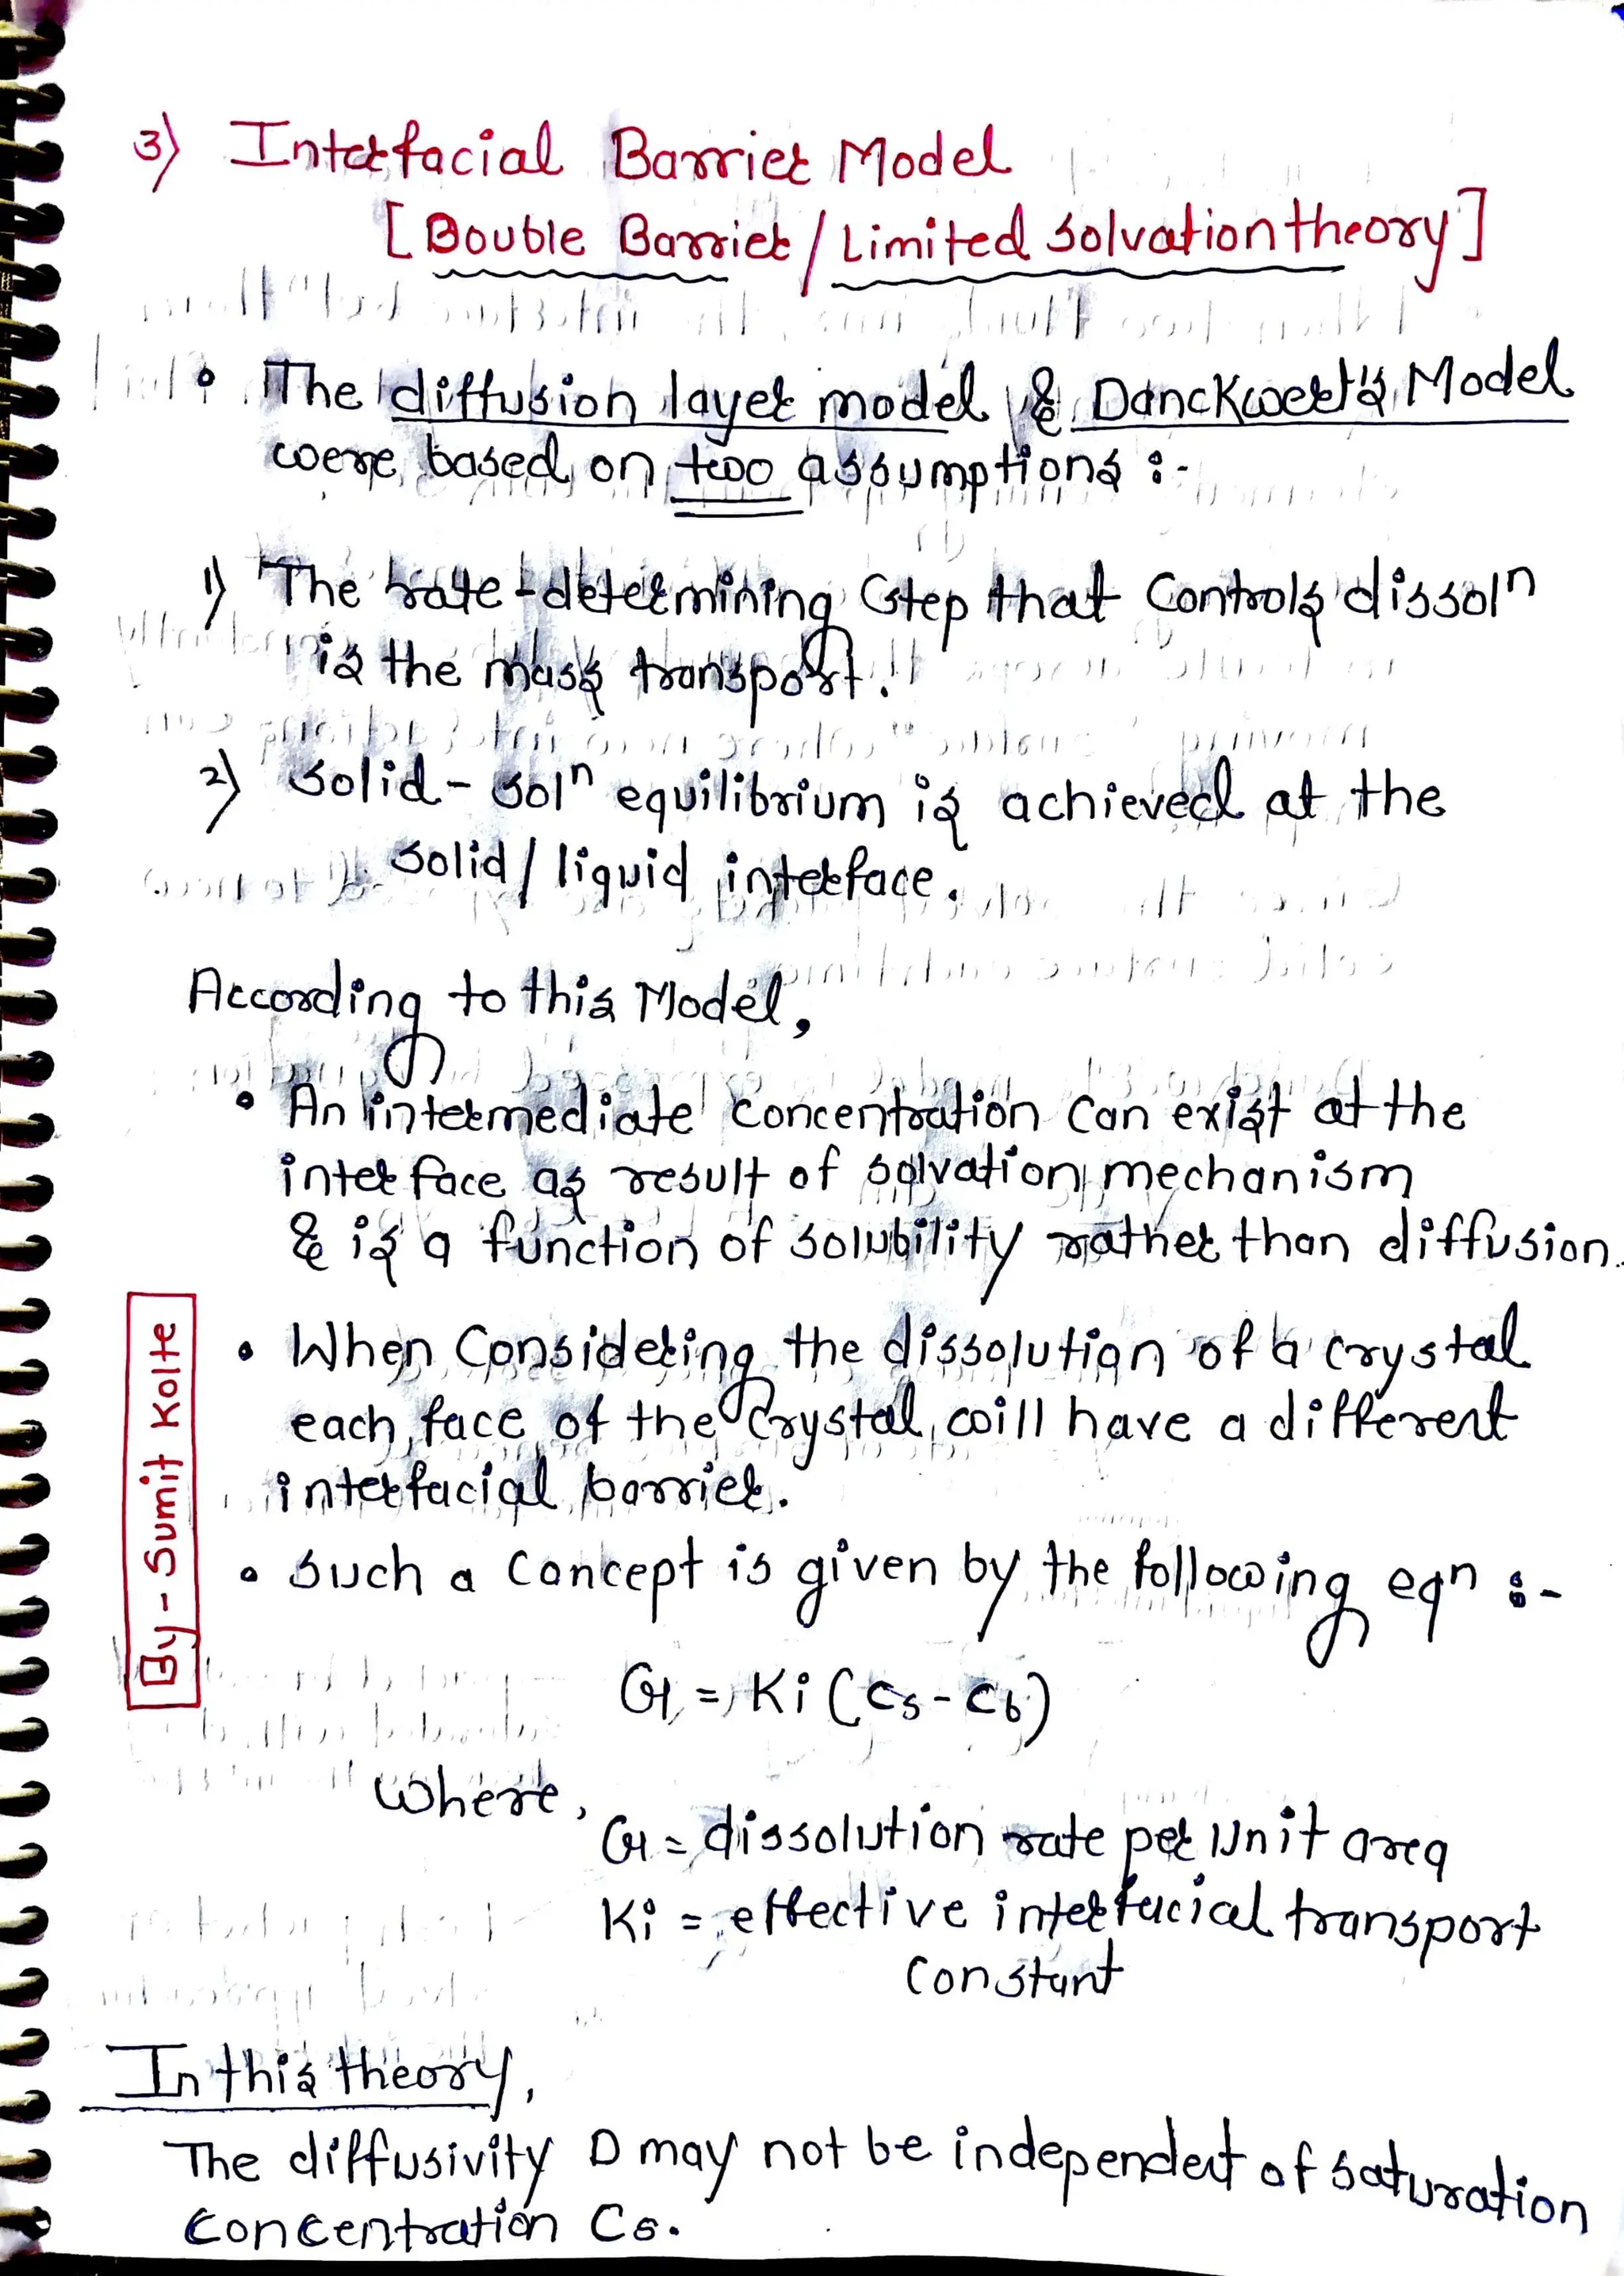 3) Interfacial Barrier Model
[Double Barrier / Limited solvation theory]
• The diffusion layer model & Danckwert's Model
were based on two assumptions :-
1) The rate-determining step that controls dissolⁿ
is the mass transport.
2) solid - solⁿ equilibrium is achieved at the
solid / liquid interface.
According to this Model,
• An intermediate concentration can exist at the
interface as result of solvation mechanism
& is a function of solubility rather than diffusion.
• When Considering the dissolution of a crystal
each face of the crystal will have a different
interfacial barrier.
• such a Concept is given by the following eqⁿ :-
G = Ki (Cs - Cb)
where,
G = dissolution rate per Unit area
Ki = effective interfacial transport
Constant
In this theory,
The diffusivity D may not be independent of saturation
concentration Cs.
By - Sumit Kolte